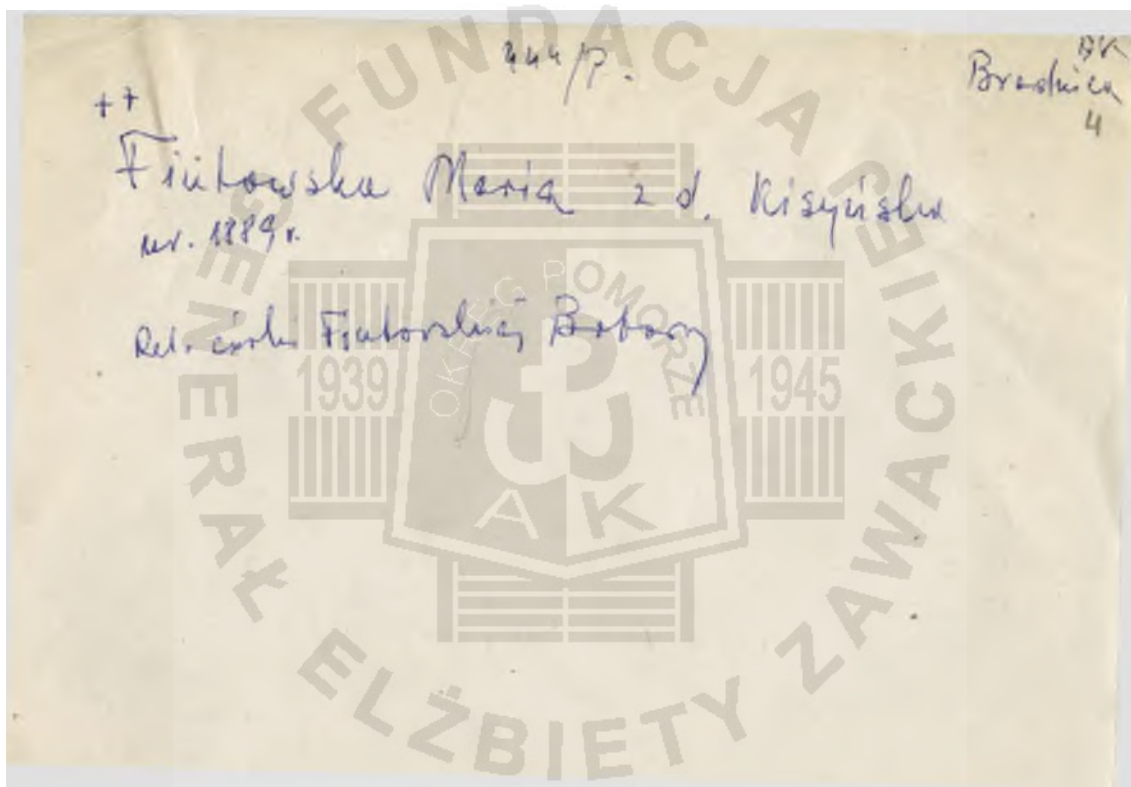 444/P.
AK
Brodnica
4
++
Fiutowska Maria z d. Kisyńska
ur. 1889 r.
Rel. córki Fiutowskiej Barbary
FUNDACJA
GENERAŁ ELŻBIETY ZAWACKIEJ
OKRĘG POMORZE
1939
1945
AK